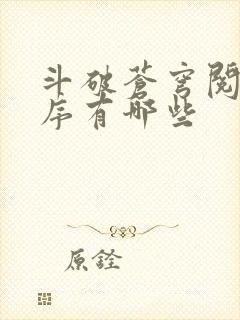 斗破苍穹阅
序有哪些
原銓